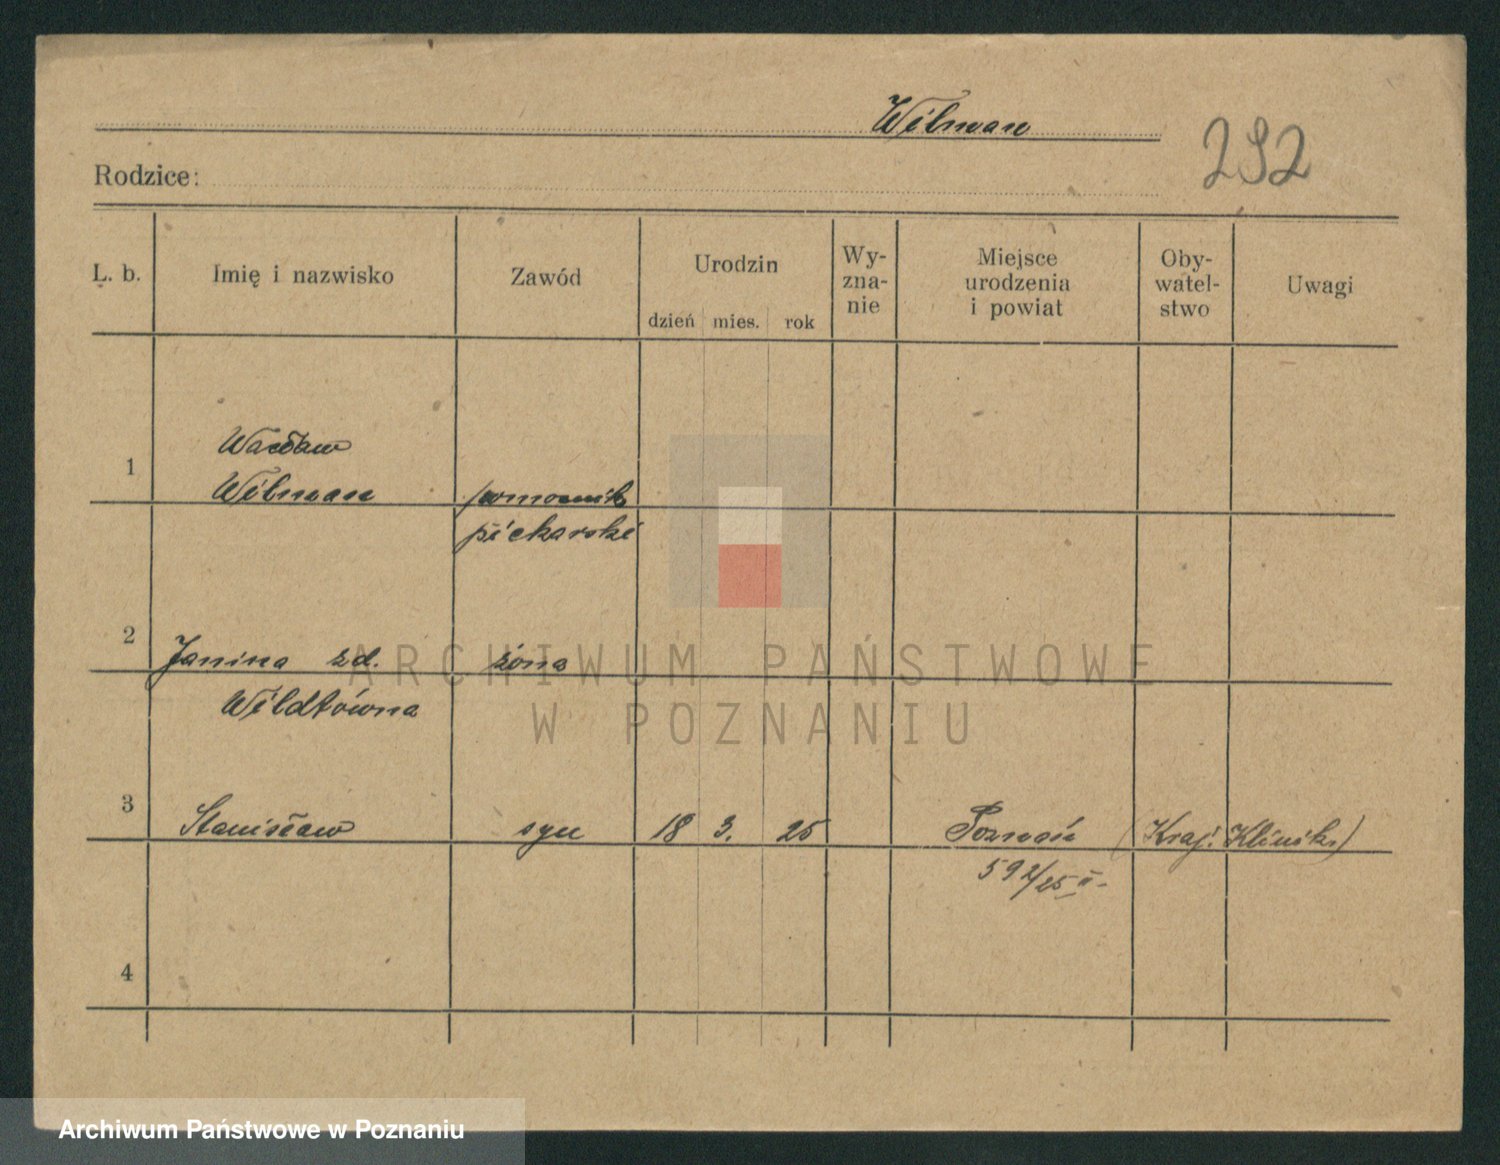 Wilman
292
Rodzice:
L. b.
Imię i nazwisko
Zawód
Urodzin
dzień mies. rok
Wy-
zna-
nie
Miejsce
urodzenia
i powiat
Oby-
watel-
stwo
Uwagi
1
Wacław
Wilman
pomocnik
piekarski
2
Janina zd. żona
Wildtówna
3
Stanisław syn 18 3. 25 Poznań (Kraj. Klinik.)
592/25 II.
4
ARCHIWUM PAŃSTWOWE
W POZNANIU
Archiwum Państwowe w Poznaniu